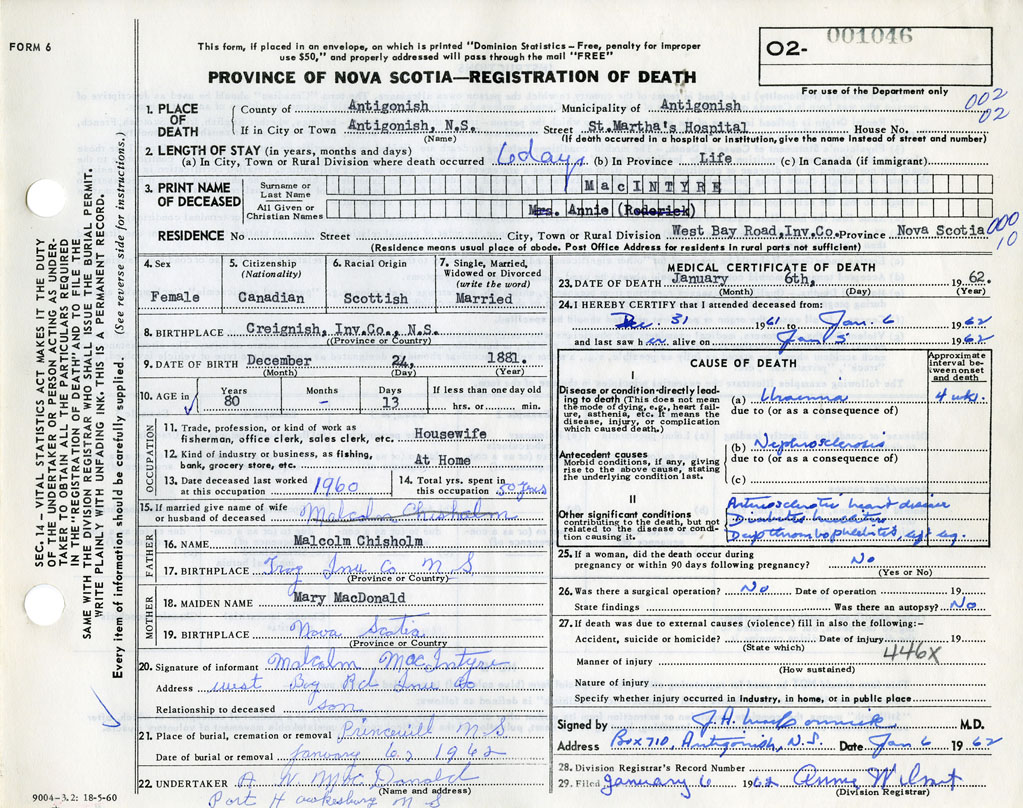 FORM 6
This form, if placed in an envelope, on which is printed "Dominion Statistics – Free, penalty for improper
use $50," and properly addressed will pass through the mail "FREE"
PROVINCE OF NOVA SCOTIA—REGISTRATION OF DEATH
O2- 001046
For use of the Department only
002
02
1. PLACE OF DEATH
County of Antigonish Municipality of Antigonish
If in City or Town Antigonish, N.S. Street St.Martha's Hospital House No.
(Name) (If death occurred in a hospital or institution, give the name instead of street and number)
2. LENGTH OF STAY (in years, months and days)
(a) In City, Town or Rural Division where death occurred 6 days (b) In Province Life (c) In Canada (if immigrant)
3. PRINT NAME OF DECEASED
Surname or Last Name MacINTYRE
All Given or Christian Names Mrs. Annie (Roderick)
RESIDENCE No Street City, Town or Rural Division West Bay Road, Inv.Co. Province Nova Scotia
000
10
(Residence means usual place of abode. Post Office Address for residents in rural parts not sufficient)
4. Sex
Female
5. Citizenship
(Nationality)
Canadian
6. Racial Origin
Scottish
7. Single, Married,
Widowed or Divorced
(write the word)
Married
8. BIRTHPLACE Creignish, Inv.Co., N.S.
(Province or Country)
9. DATE OF BIRTH December 24, 1881.
(Month) (Day) (Year)
10. AGE in
Years Months Days If less than one day old
80 – 13 hrs. or min.
OCCUPATION
11. Trade, profession, or kind of work as
fisherman, office clerk, sales clerk, etc. Housewife
12. Kind of industry or business, as fishing,
bank, grocery store, etc. At Home
13. Date deceased last worked
at this occupation 1960
14. Total yrs. spent in
this occupation 50 yrs
15. If married give name of wife
or husband of deceased Malcolm Chisholm
FATHER
16. NAME Malcolm Chisholm
17. BIRTHPLACE Troy Inv Co N S
(Province or Country)
MOTHER
18. MAIDEN NAME Mary MacDonald
19. BIRTHPLACE Nova Scotia
(Province or Country
20. Signature of informant Malcolm MacIntyre
Address West Bay Rd Inv Co
Relationship to deceased son
21. Place of burial, cremation or removal Princevill N S
Date of burial or removal January 1962
22. UNDERTAKER A W MacDonald
(Name and address)
Port Hawkesbury N S
9004-3.2: 18-5-60
MEDICAL CERTIFICATE OF DEATH
23. DATE OF DEATH January 6th, 1962.
(Month) (Day) (Year)
24. I HEREBY CERTIFY that I attended deceased from:
Dec. 31 1961 to Jan. 6 1962
and last saw her alive on Jan 5 1962
CAUSE OF DEATH
Approximate
interval be-
tween onset
and death
I
Disease or condition directly lead-
ing to death (This does not mean
the mode of dying, e.g., heart fail-
ure, asthenia, etc. It means the
disease, injury, or complication
which caused death.)
(a) Uraemia 4 wks.
due to (or as a consequence of)
(b) Nephrosclerosis
Antecedent causes
Morbid conditions, if any, giving
rise to the above cause, stating
the underlying condition last.
due to (or as a consequence of)
(c)
II
Other significant conditions
contributing to the death, but not
related to the disease or condi-
tion causing it.
Arteriosclerotic heart disease
Diabetes mellitus
Deep thrombophlebitis,
25. If a woman, did the death occur during
pregnancy or within 90 days following pregnancy? No
(Yes or No)
26. Was there a surgical operation? No Date of operation 19
State findings Was there an autopsy? No
27. If death was due to external causes (violence) fill in also the following:–
Accident, suicide or homicide? Date of injury 19
(State which) 446X
Manner of injury
(How sustained)
Nature of injury
Specify whether injury occurred in industry, in home, or in public place
Signed by J.A. MacCormick M.D.
Address Box 710, Antigonish, N.S. Date Jan 6 1962
28. Division Registrar's Record Number
29. Filed January 6 1962 Annie
(Division Registrar)
SEC. 14 – VITAL STATISTICS ACT MAKES IT THE DUTY
OF THE UNDERTAKER OR PERSON ACTING AS UNDER-
TAKER TO OBTAIN ALL THE PARTICULARS REQUIRED
IN THE "REGISTRATION OF DEATH" AND TO FILE THE
SAME WITH THE DIVISION REGISTRAR WHO SHALL ISSUE THE BURIAL PERMIT.
WRITE PLAINLY WITH UNFADING INK. THIS IS A PERMANENT RECORD.
Every item of information should be carefully supplied. (See reverse side for instructions.)